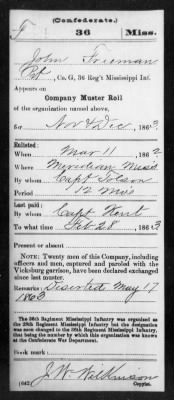 (Confederate.)
F 36 Miss.
John Freeman
Pvt, Co. G, 36 Reg't Mississippi Inf.
Appears on
Company Muster Roll
of the organization named above,
for Nov & Dec, 1863.
Enlisted:
When Mar 11, 1862
Where Meridian Miss
By whom Capt
Period 12 Mos
Last paid:
By whom Capt Hunt
To what time Feb 28, 1863
Present or absent
NOTE: Twenty men of this Company, including
officers and men, captured and paroled with the
Vicksburg garrison, have been declared exchanged
since last muster.
Remarks: Diserted May 17
1863
The 36th Regiment Mississippi Infantry was organized as
the 39th Regiment Mississippi Infantry but the designation
was soon changed to the 36th Regiment Mississippi Infantry,
that being the number by which this organization was known
at the Confederate War Department.
Book mark:
J. W. Wilkinson
(642) Copyist.